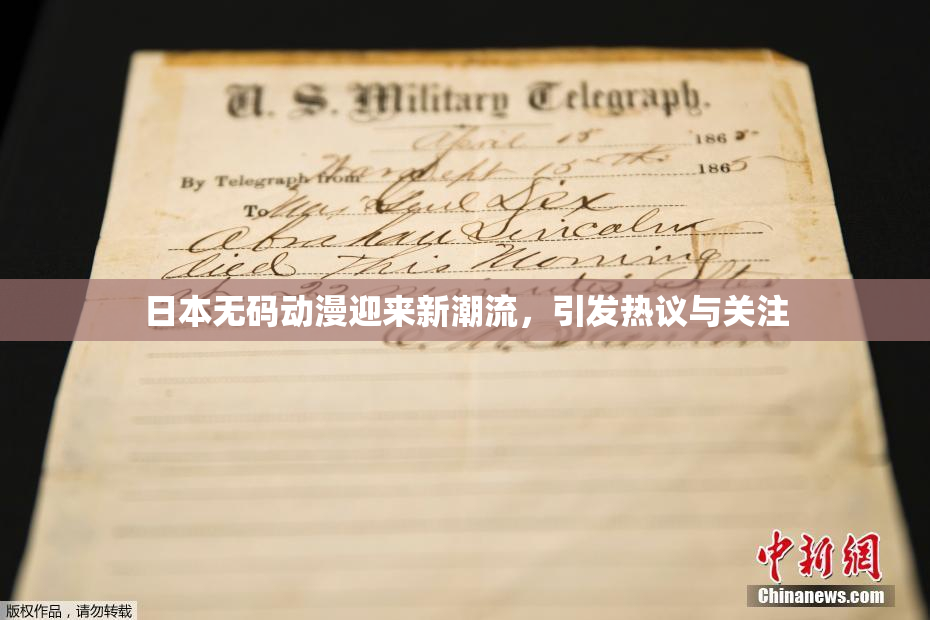 U. S. Military Telegraph.
April 15 1865
By Telegraph from War Dept 15th 1865
To Maj Genl Dix
Abraham Lincoln
died this morning
at 22 minutes after
日本无码动漫迎来新潮流，引发热议与关注
E. M. Stanton
中新網
Chinanews.com
版权作品，请勿转载